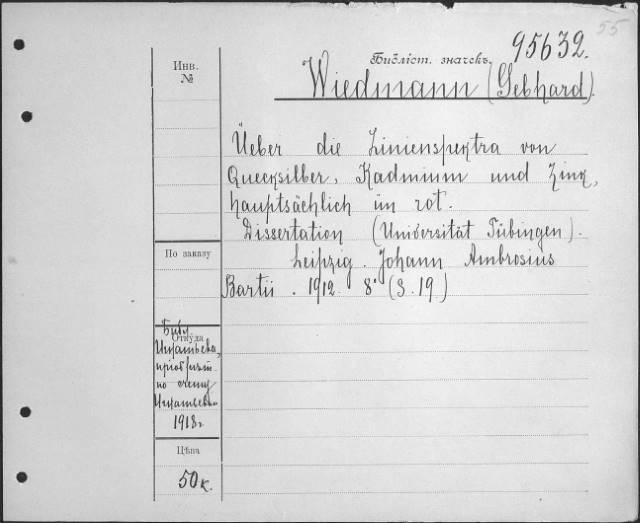 55
95632.
Библіот. значекъ.
Инв.
№
Wiedmann (Gebhard).
Üeber die Linienspektra von
Quecksilber, Kadmium und Zink,
hauptsächlich im rot.
Dissertation (Universität Tübingen).
Leipzig. Johann Ambrosius
Bartii. 1912. 8° (S. 19.)
По заказу
Откуда
по счету
1918г.
Цѣна
50к.